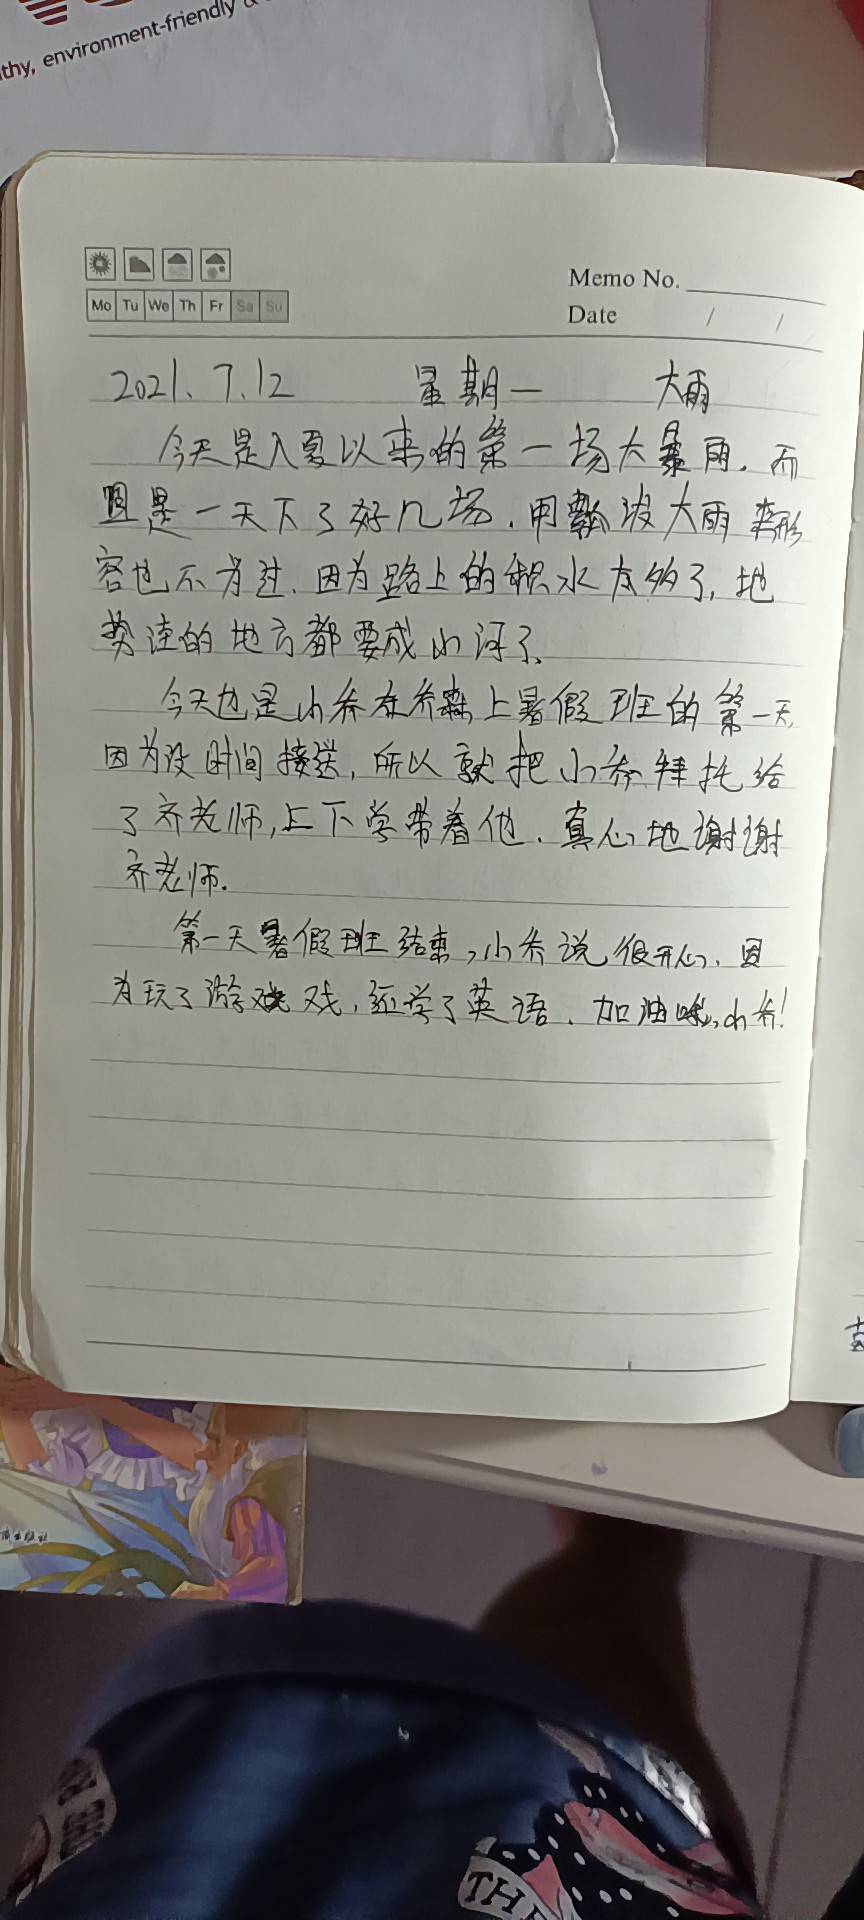 thy, environment-friendly
Memo No.
Mo Tu We Th Fr Sa Su
Date / /
2021.7.12 星期一 大雨
今天是入夏以来的第一场大暴雨,而
且是一天下了好几场,用瓢泼大雨来形
容也不为过,因为路上的积水太多了,地
势洼的地方都要成小河了、
今天也是小乔在乔森上暑假班的第一天,
因为没时间接送,所以就把小乔拜托给
了齐老师,上下学带着他.真心地谢谢
齐老师.
第一天暑假班结束,小乔说很开心,因
为玩了游戏,还学了英语.加油哦,小乔!
TH